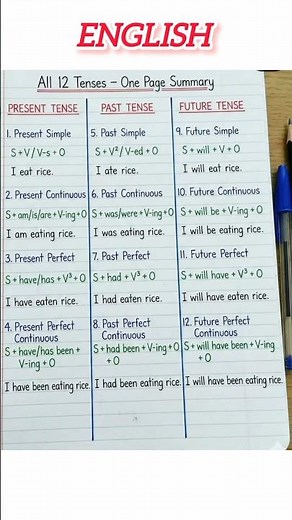 ENGLISH
All 12 Tenses – One Page Summary
PRESENT TENSE
1. Present Simple
S + V / V-s + O
I eat rice.
2. Present Continuous
S + am/is/are + V-ing + O
I am eating rice.
3. Present Perfect
S + have/has + V³ + O
I have eaten rice.
4. Present Perfect
Continuous
S + have/has been +
V-ing + O
I have been eating rice.
PAST TENSE
5. Past Simple
S + V² / V-ed + O
I ate rice.
6. Past Continuous
S + was/were + V-ing + O
I was eating rice.
7. Past Perfect
S + had + V³ + O
I had eaten rice.
8. Past Perfect
Continuous
S + had been + V-ing + O
+ O
I had been eating rice.
FUTURE TENSE
9. Future Simple
S + will + V + O
I will eat rice.
10. Future Continuous
S + will be + V-ing + O
I will be eating rice.
11. Future Perfect
S + will have + V³ + O
I will have eaten rice.
12. Future Perfect
Continuous
S + will have been + V-ing
+ O
I will have been eating rice.